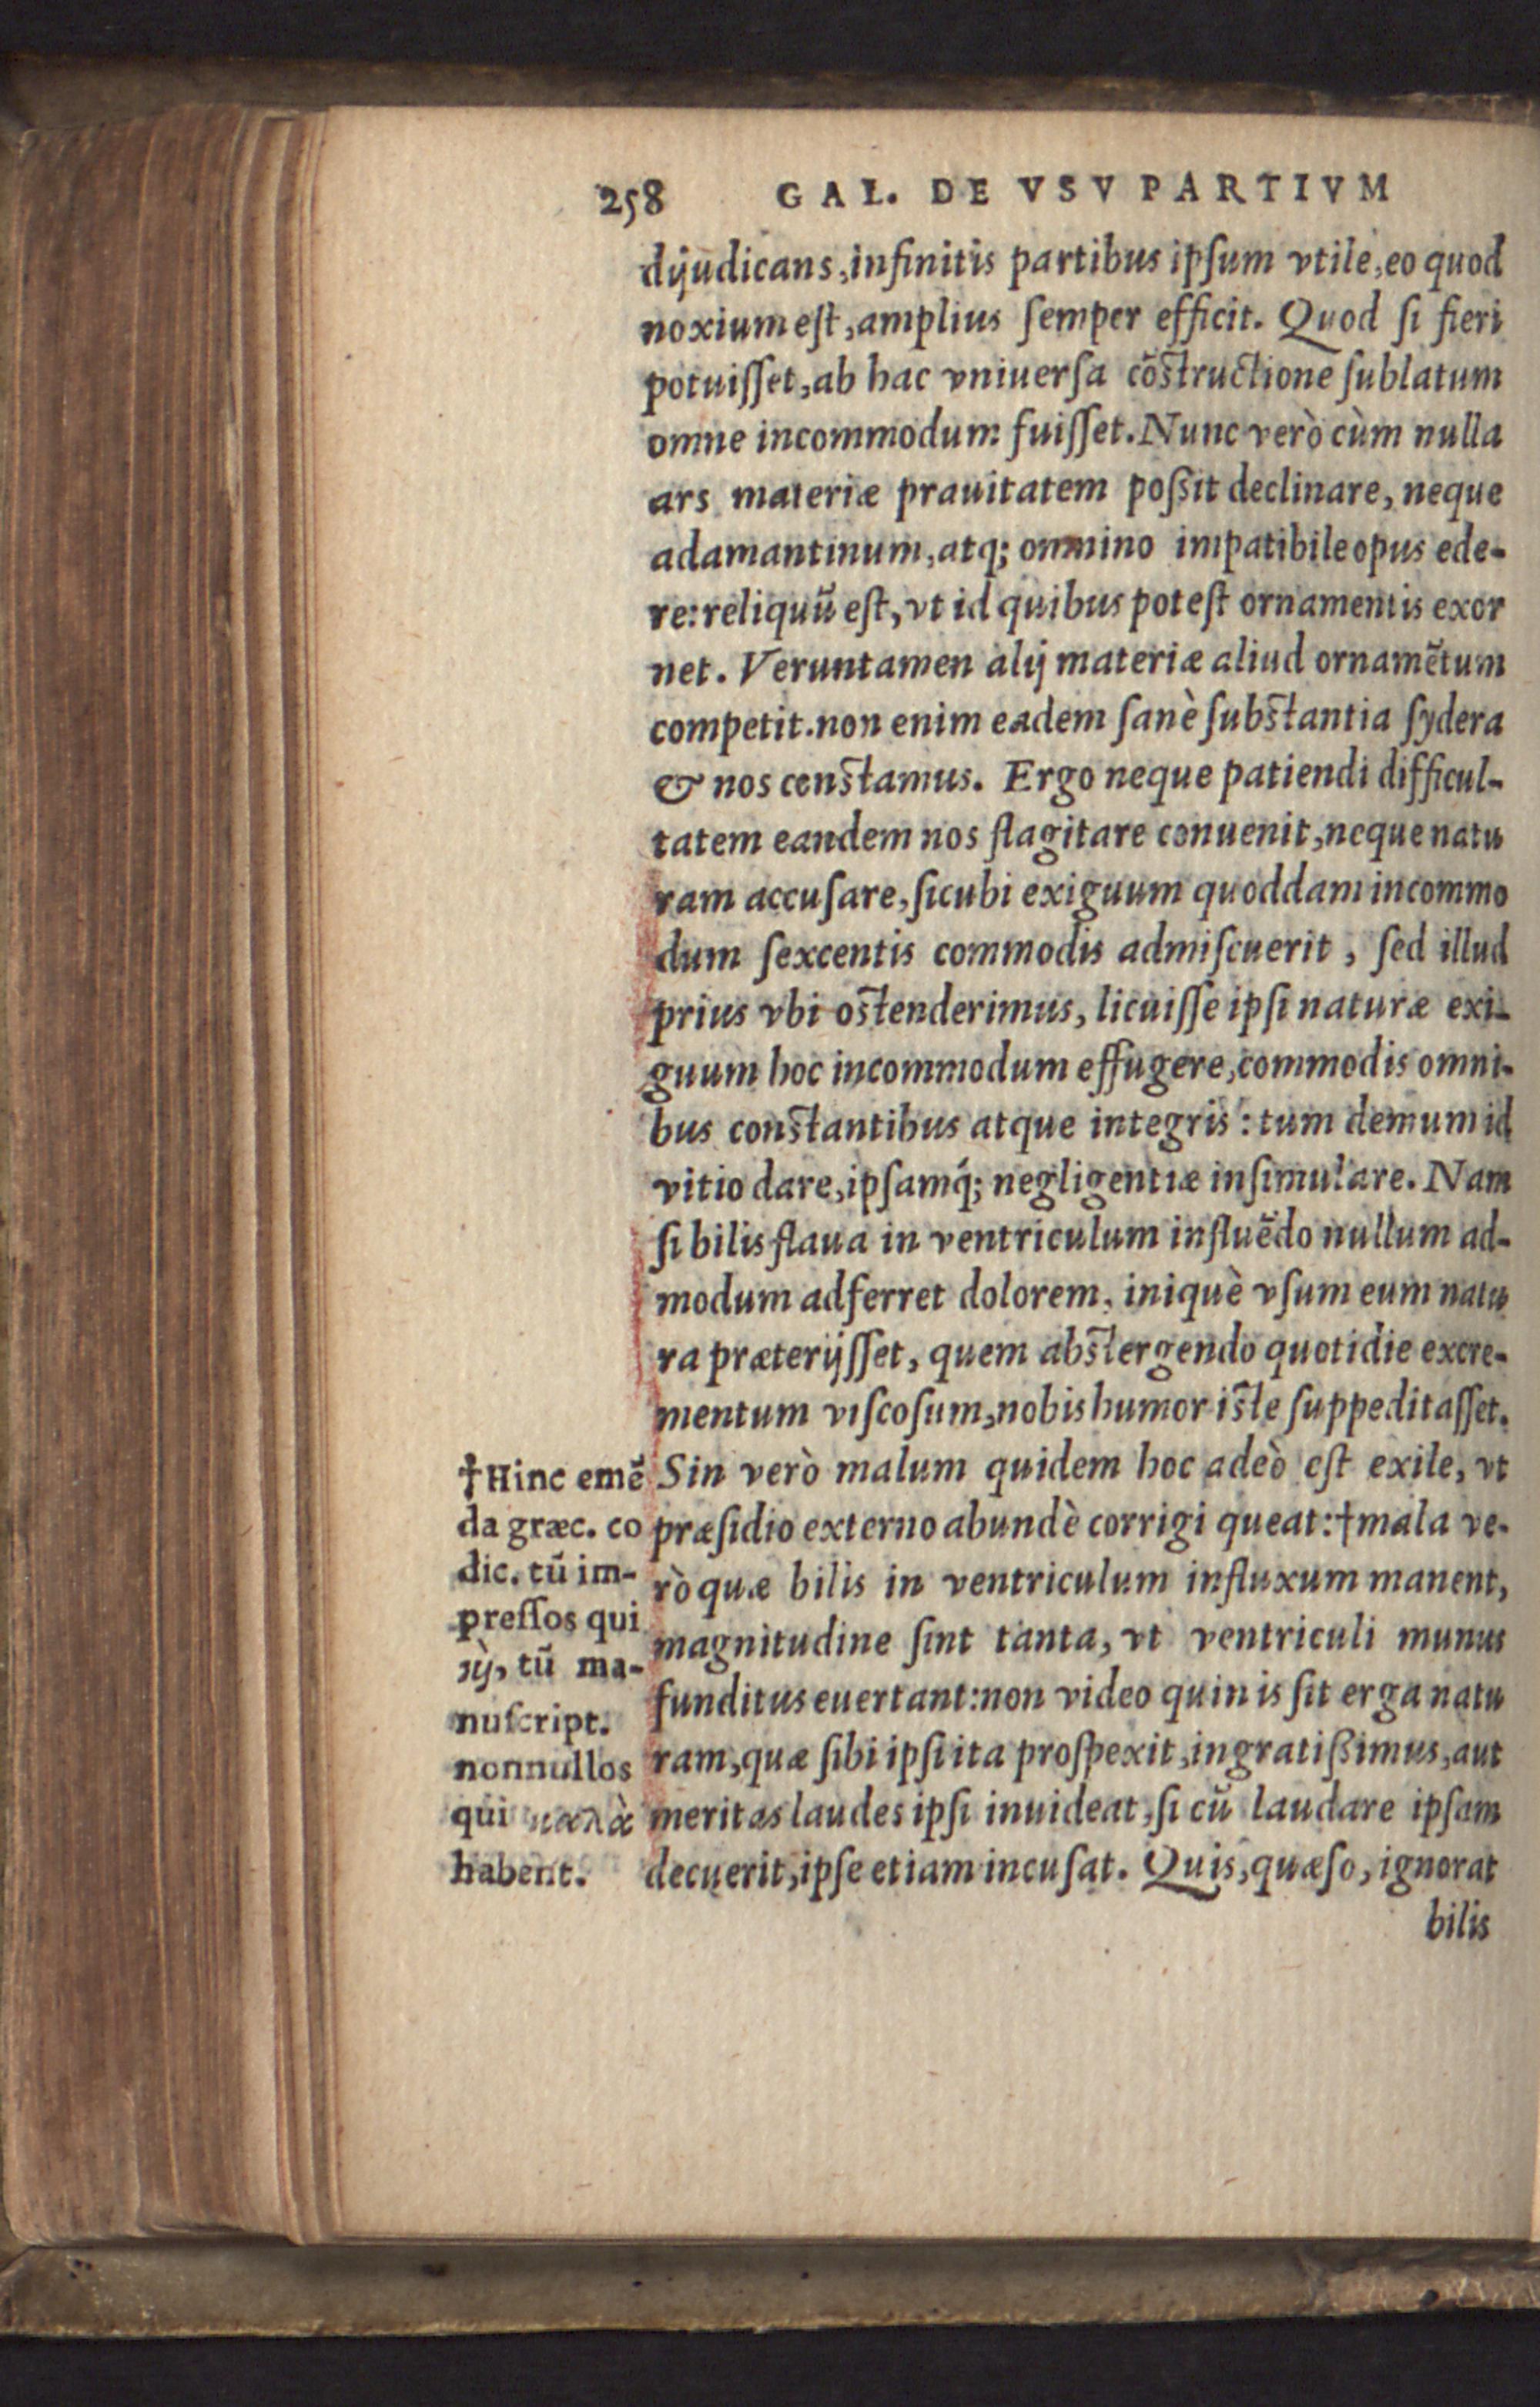 258 GAL. DE VSV PARTIVM
dijudicans, infinitis partibus ipſum vtile, eo quod
noxium eſt, amplius ſemper efficit. Quod ſi fieri
potuiſſet, ab hac vniuerſa cõſtructione ſublatum
omne incommodum fuiſſet. Nunc verò cùm nulla
ars materiæ prauitatem poſsit declinare, neque
adamantinum, atq; omnino impatibile opus ede-
re: reliquũ eſt, vt id quibus poteſt ornamentis exor
net. Veruntamen alij materiæ aliud ornamẽtum
competit. non enim eadem ſanè ſubſtantia ſydera
& nos conſtamus. Ergo neque patiendi difficul-
tatem eandem nos flagitare conuenit, neque natu
ram accuſare, ſicubi exiguum quoddam incommo
dum ſexcentis commodis admiſcuerit, ſed illud
prius vbi oſtenderimus, licuiſſe ipſi naturæ exi-
guum hoc incommodum effugere, commodis omni-
bus conſtantibus atque integris: tum demum id
vitio dare, ipſamq́; negligentiæ inſimulare. Nam
ſi bilis flaua in ventriculum influẽdo nullum ad-
modum adferret dolorem, iniquè vſum eum natu
ra præterijſſet, quem abſtergendo quotidie excre-
mentum viſcoſum, nobis humor iſte ſuppeditaſſet.
Sin verò malum quidem hoc adeò eſt exile, vt
præſidio externo abundè corrigi queat: †mala ve-
rò quæ bilis in ventriculum influxum manent,
magnitudine ſint tanta, vt ventriculi munus
funditus euertant: non video quin is ſit erga natu
ram, quæ ſibi ipſi ita proſpexit, ingratiſsimus, aut
meritas laudes ipſi inuideat, ſi cũ laudare ipſam
decuerit, ipſe etiam incuſat. Quis, quæſo, ignorat
bilis
†Hinc emẽ
da græc. co
dic. tũ im-
preſſos qui
tũ ma-
nuſcript.
nonnullos
qui καλὰ
habent.